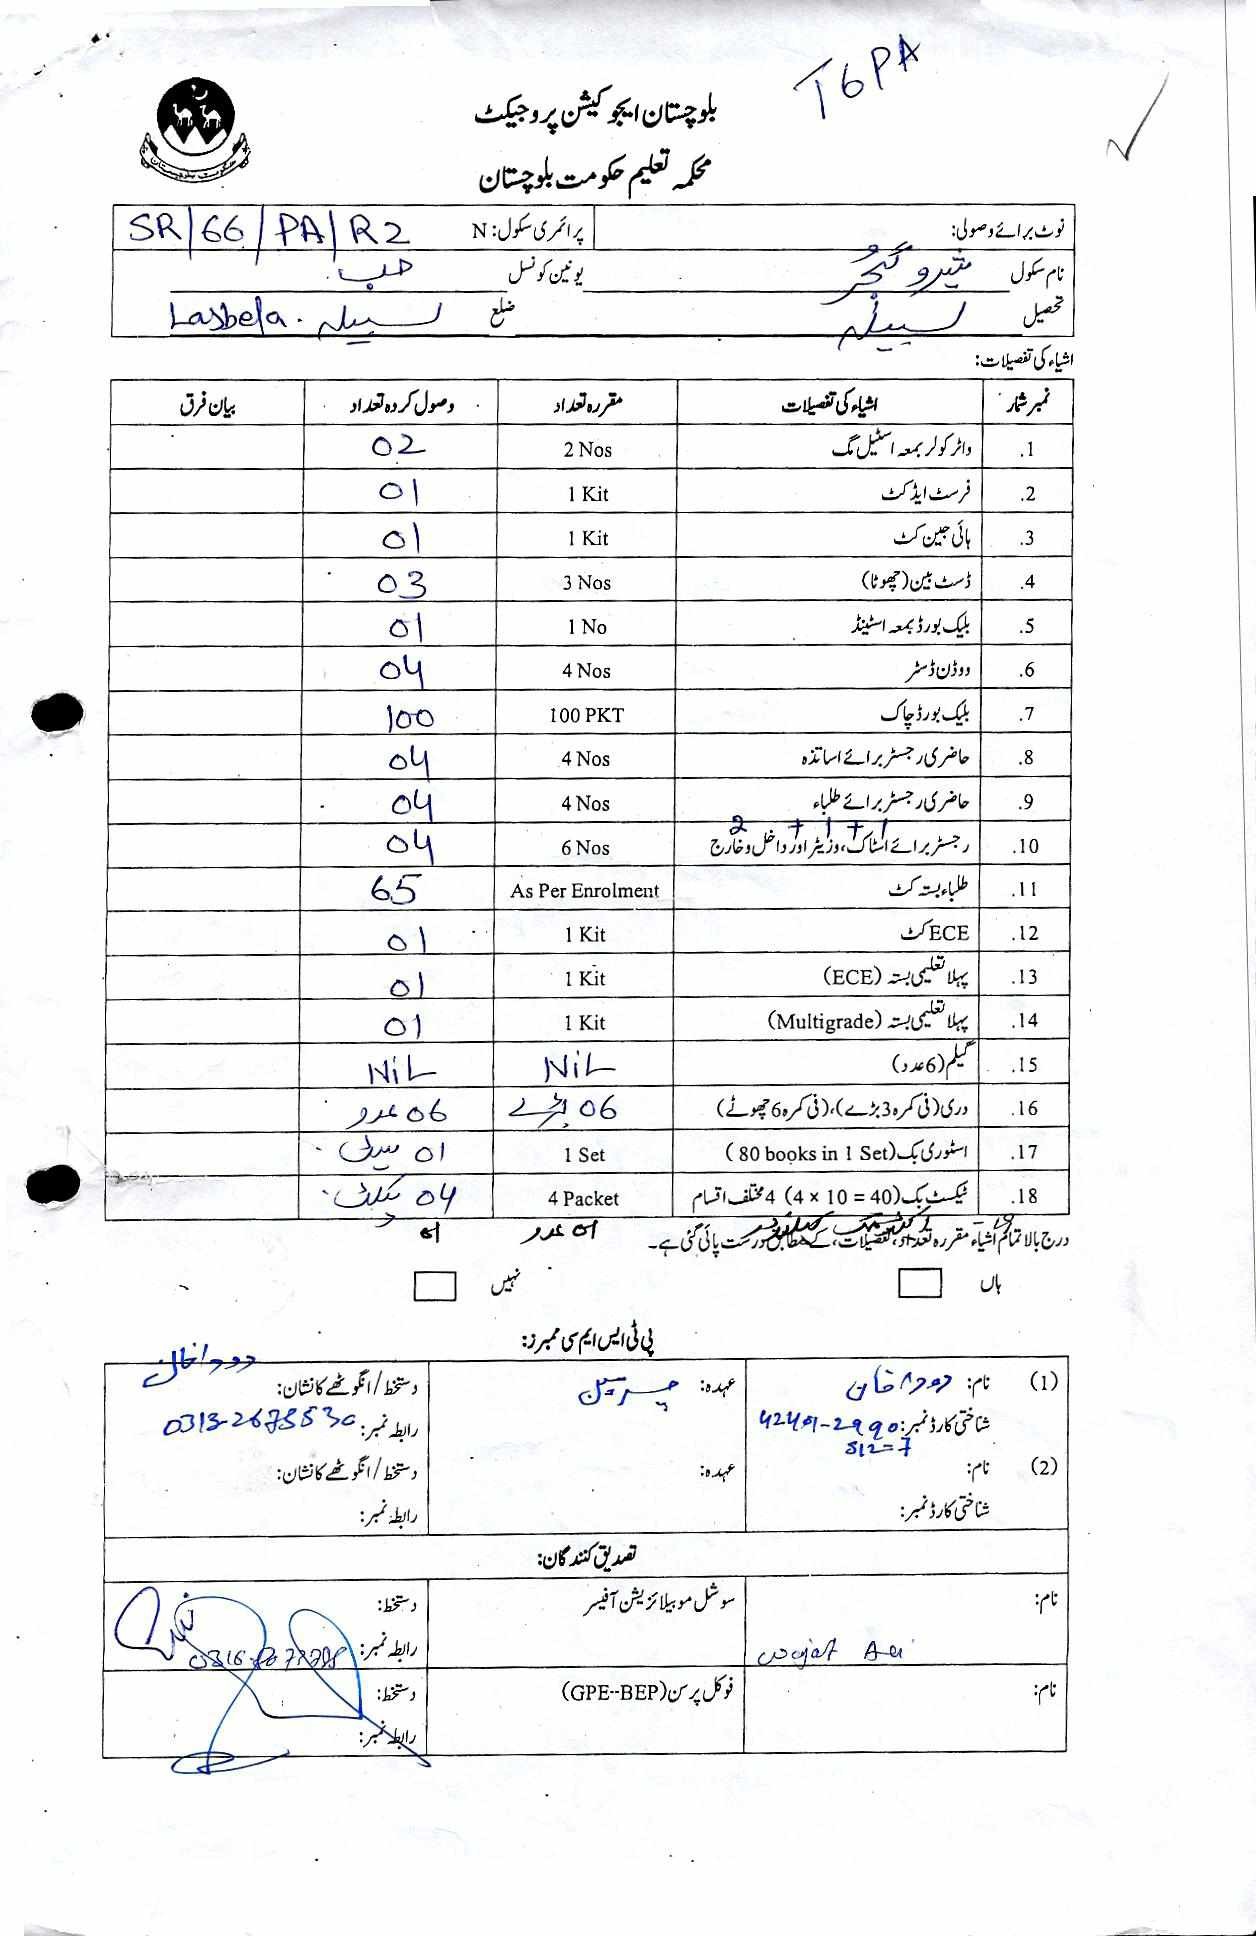 T6PA
بلوچستان ایجوکیشن پروجیکٹ
محکمہ تعلیم حکومت بلوچستان
حکومت بلوچستان
نوٹ برائے وصولی: پرائمری سکول: N SR/66/PA/R2
نام سکول یونین کونسل حب
تحصیل لسبیلہ ضلع لسبیلہ . Lasbela
اشیاء کی تفصیلات:
نمبر شمار اشیاء کی تفصیلات مقررہ تعداد وصول کردہ تعداد بیان فرق
1. واٹر کولر بمعہ اسٹیل مگ 2 Nos 02
2. فرسٹ ایڈ کٹ 1 Kit 01
3. ہائی جین کٹ 1 Kit 01
4. ڈسٹ بین (چھوٹا) 3 Nos 03
5. بلیک بورڈ بمعہ اسٹینڈ 1 No 01
6. ووڈن ڈسٹر 4 Nos 04
7. بلیک بورڈ چاک 100 PKT 100
8. حاضری رجسٹر برائے اساتذہ 4 Nos 04
9. حاضری رجسٹر برائے طلباء 4 Nos 04
2 + 1 + 1
10. رجسٹر برائے اسٹاک، وزیٹر اور داخل و خارج 6 Nos 04
11. طلباء بستہ کٹ As Per Enrolment 65
12. ECE کٹ 1 Kit 01
13. پہلا تعلیمی بستہ (ECE) 1 Kit 01
14. پہلا تعلیمی بستہ (Multigrade) 1 Kit 01
15. گیلم (6 عدد) NiL NiL
16. دری (فی کمرہ 3 بڑے)، (فی کمرہ 6 چھوٹے) 06 بڑے 06 عدد
17. اسٹوری بک (80 books in 1 Set) 1 Set 01 سیٹ
18. ٹیکسٹ بک (4 × 10 = 40) 4 مختلف اقسام 4 Packet 04 پیکٹ
01 عدد 01
درج بالا تمام اشیاء مقررہ تعداد، تفصیلات، کے مطابق درست پائی گئی ہے۔
ہاں نہیں
پی ٹی ایس ایم سی ممبرز:
(1) نام: دودا خان عہدہ: چیرمین دستخط/انگوٹھے کا نشان: دودا خان
شناختی کارڈ نمبر: 42401-2990 رابطہ نمبر:
512=7
(2) نام: عہدہ: دستخط/انگوٹھے کا نشان:
شناختی کارڈ نمبر: رابطہ نمبر:
تصدیق کنندگان:
نام: سوشل موبیلائزیشن آفیسر دستخط:
رابطہ نمبر:
نام: فوکل پرسن (GPE--BEP) دستخط:
رابطہ نمبر: